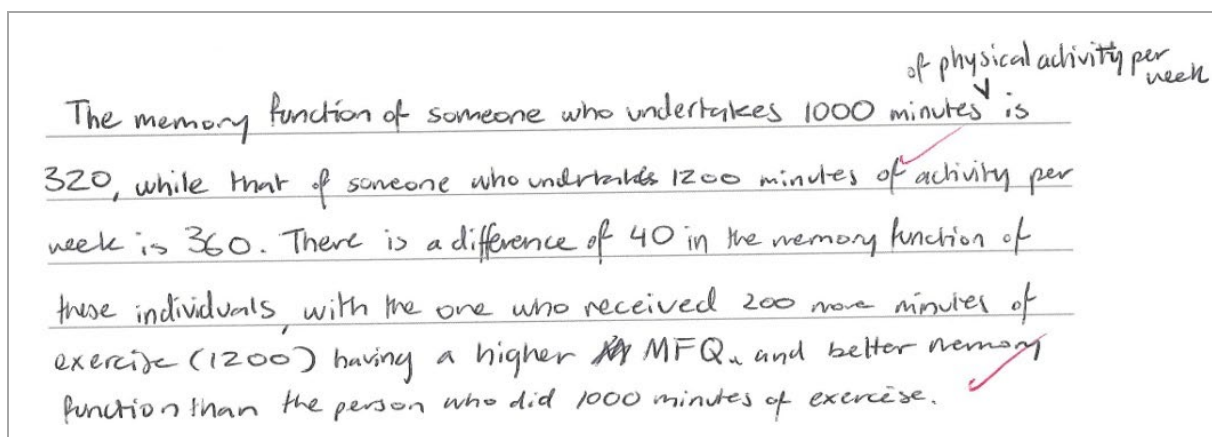 of physical activity per
week
The memory function of someone who undertakes 1000 minutes is
320, while that of someone who undertakes 1200 minutes of activity per
week is 360. There is a difference of 40 in the memory function of
these individuals, with the one who received 200 more minutes of
exercise (1200) having a higher MFQ. and better memory
function than the person who did 1000 minutes of exercise.